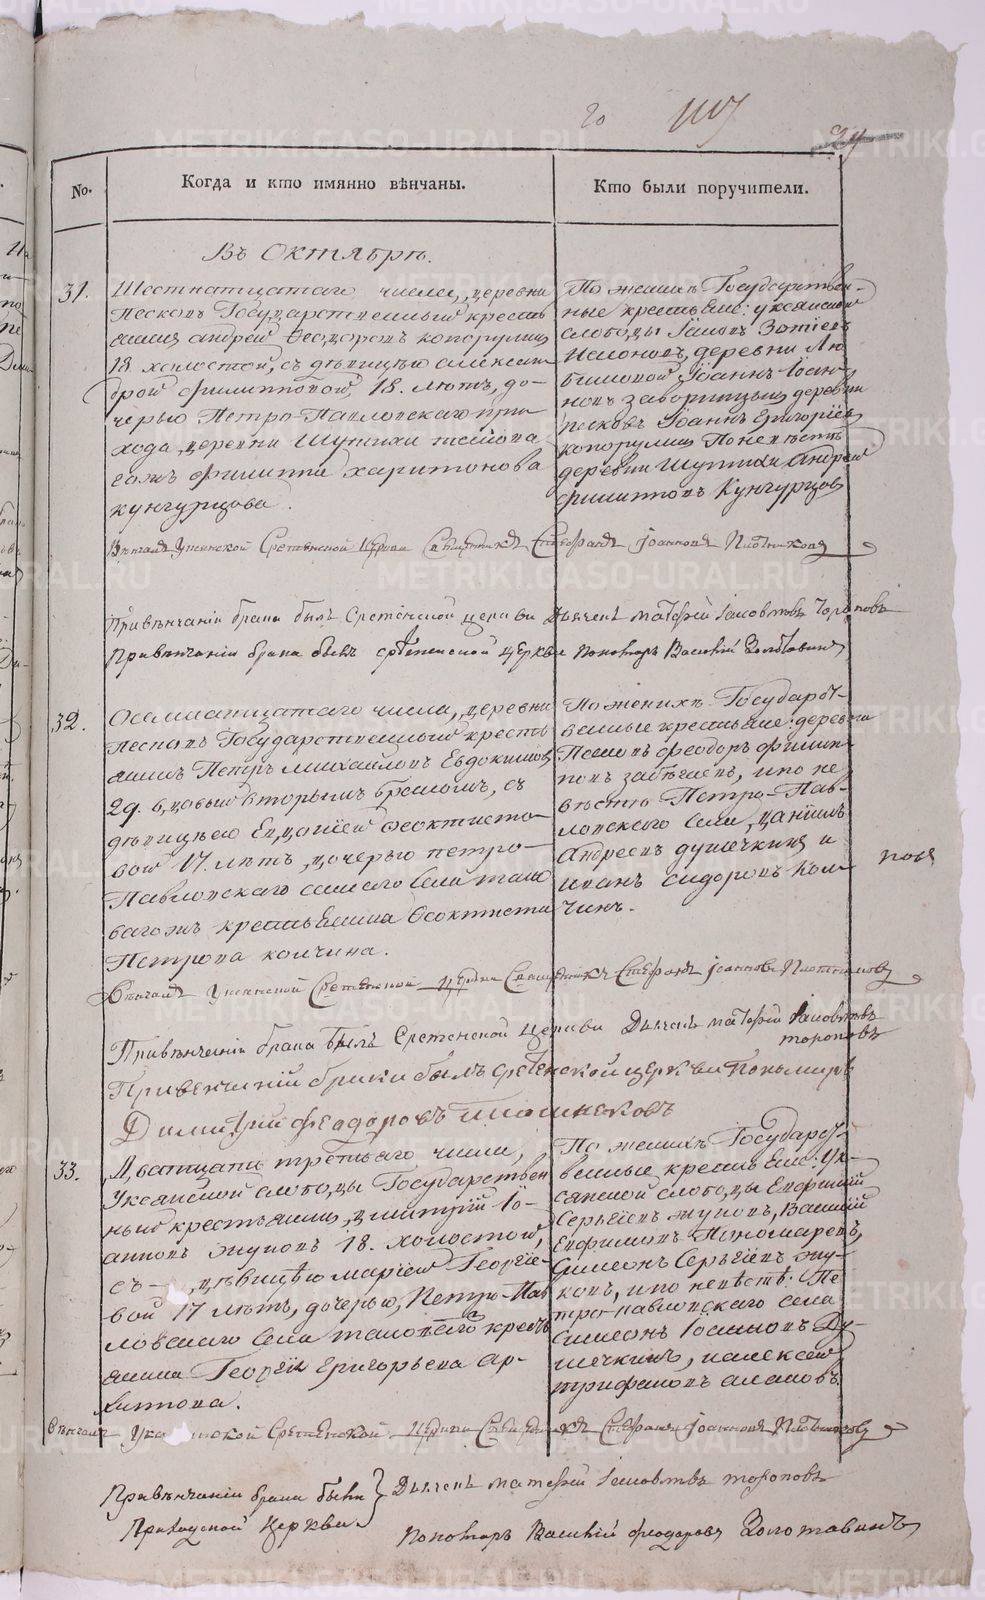 20
34
No.
Когда и кто имянно вѣнчаны.
Кто были поручители.
Въ Октябрѣ.
31.
Шестнатцатаго числа, деревни
Песковъ Государственный кресть
янинъ Андрей Ѳеодоровъ
18 холостой, съ дѣвицею Алексан
дрой Филипповой, 18. лѣтъ, до-
черью Петро-Павловскаго при
хода, деревни
гожъ Филиппа Харитонова
Кунгурцова.
По женихѣ Государствен-
ные крестьяне: Уксянской
слободы
деревни Лю
бимовой Іоаннъ Іоан-
новъ деревни
Песковъ Іоаннъ Григоріевъ
По невѣстѣ
деревни Андрей
Филипповъ Кунгурцов
Вѣнчалъ Уксянской Срѣтенской Церкви Священникъ Стефанъ Іоанновъ Плотниковъ
При вѣнчаніи брака былъ Срѣтенской церкви Дьячекъ Матфей Іаковлевъ Тороповъ
При вѣнчаніи брака былъ Срѣтенской церкви Пономарь Василій Золотавинъ
32.
Осемнатцатаго числа, деревни
Песковъ Государственный кресть
янинъ Петръ Михайловъ Евдокимовъ,
29. вдовый вторымъ бракомъ, съ
дѣвицѣю Евдокіей Ѳеоктисто-
вой 17. лѣтъ, дочерью Петро-
Павловскаго самаго села тако
вагожъ крестьянина Ѳеоктиста
Петрова Колчина.
По женихѣ Государст-
венные крестьяне: деревни
Песковъ Феодоръ Филип-
повъ и по не
вѣстѣ Петро-Пав-
ловскаго села, Даніилъ
Андреевъ Душечкинъ и
Иванъ Сидоровъ Кол-
чинъ.
Вѣнчалъ Уксянской Срѣтенской Церкви Священникъ Стефанъ Іоанновъ Плотниковъ
При вѣнчаніи брака былъ Срѣтенской церкви Дьячекъ Матфей Іаковлевъ
Тороповъ
При венчаніи брака былъ Сретенской церкви Пономарь
Димитрій Феодоровъ
33.
Дватцать третьяго числа,
Уксянской слободы Государствен
ный крестьянинъ Димитрій Іо-
анновъ Жуковъ 18. холостой,
съ дѣвицѣю Маріей Георгіе-
вой 17 лѣтъ, дочерью, Петро-Пав
ловскаго села таковагожъ кресть
янина Георгія Григорьева Ар-
хипова.
По женихѣ Государст-
венные крестьяне: Ук-
сянской слободы Евфимій
Сергіевъ Жуковъ, Василій
Евфимовъ Пономаревъ,
Симеонъ Сергіевъ Жу-
ковъ, и по невѣстѣ: Пе
тро-Павловскаго села
Симеонъ Іоанновъ Ду-
шечкинъ, и Алексей
Трифановъ
Вѣнчалъ Уксянской Срѣтенской Церкви Священникъ Стефанъ Іоанновъ Плотниковъ
При вѣнчаніи брака были
Приходской Церкви
Дьячекъ Матфей Іаковлевъ Тороповъ
Пономарь Василій Феодоровъ Золотавинъ
METRIKI.GASO-URAL.RU